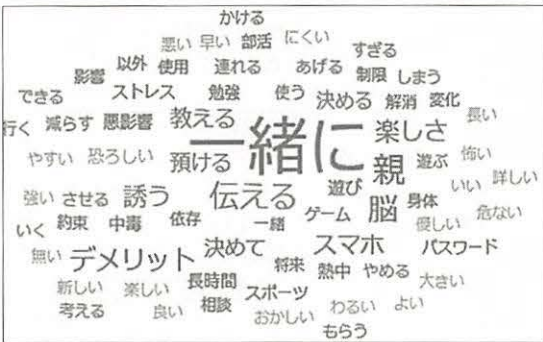 かける
悪い 早い 部活 にくい
すぎる
影響 以外 使用 連れる あげる 制限 しまう
できる ストレス 勉強 使う 決める 解消 変化
行く 減らす 悪影響 教える 一緒に 楽しさ 長い
やすい 恐ろしい 預ける 親 遊ぶ 怖い
強い させる 誘う 伝える 遊び 脳 いい 詳しい
いく 約束 中毒 依存 一緒 ゲーム 身体 優しい 危ない
無い デメリット 決めて スマホ パスワード
将来 熱中 やめる
新しい 楽しい 長時間 スポーツ 大きい
考える 良い 相談 おかしい わるい よい
もらう